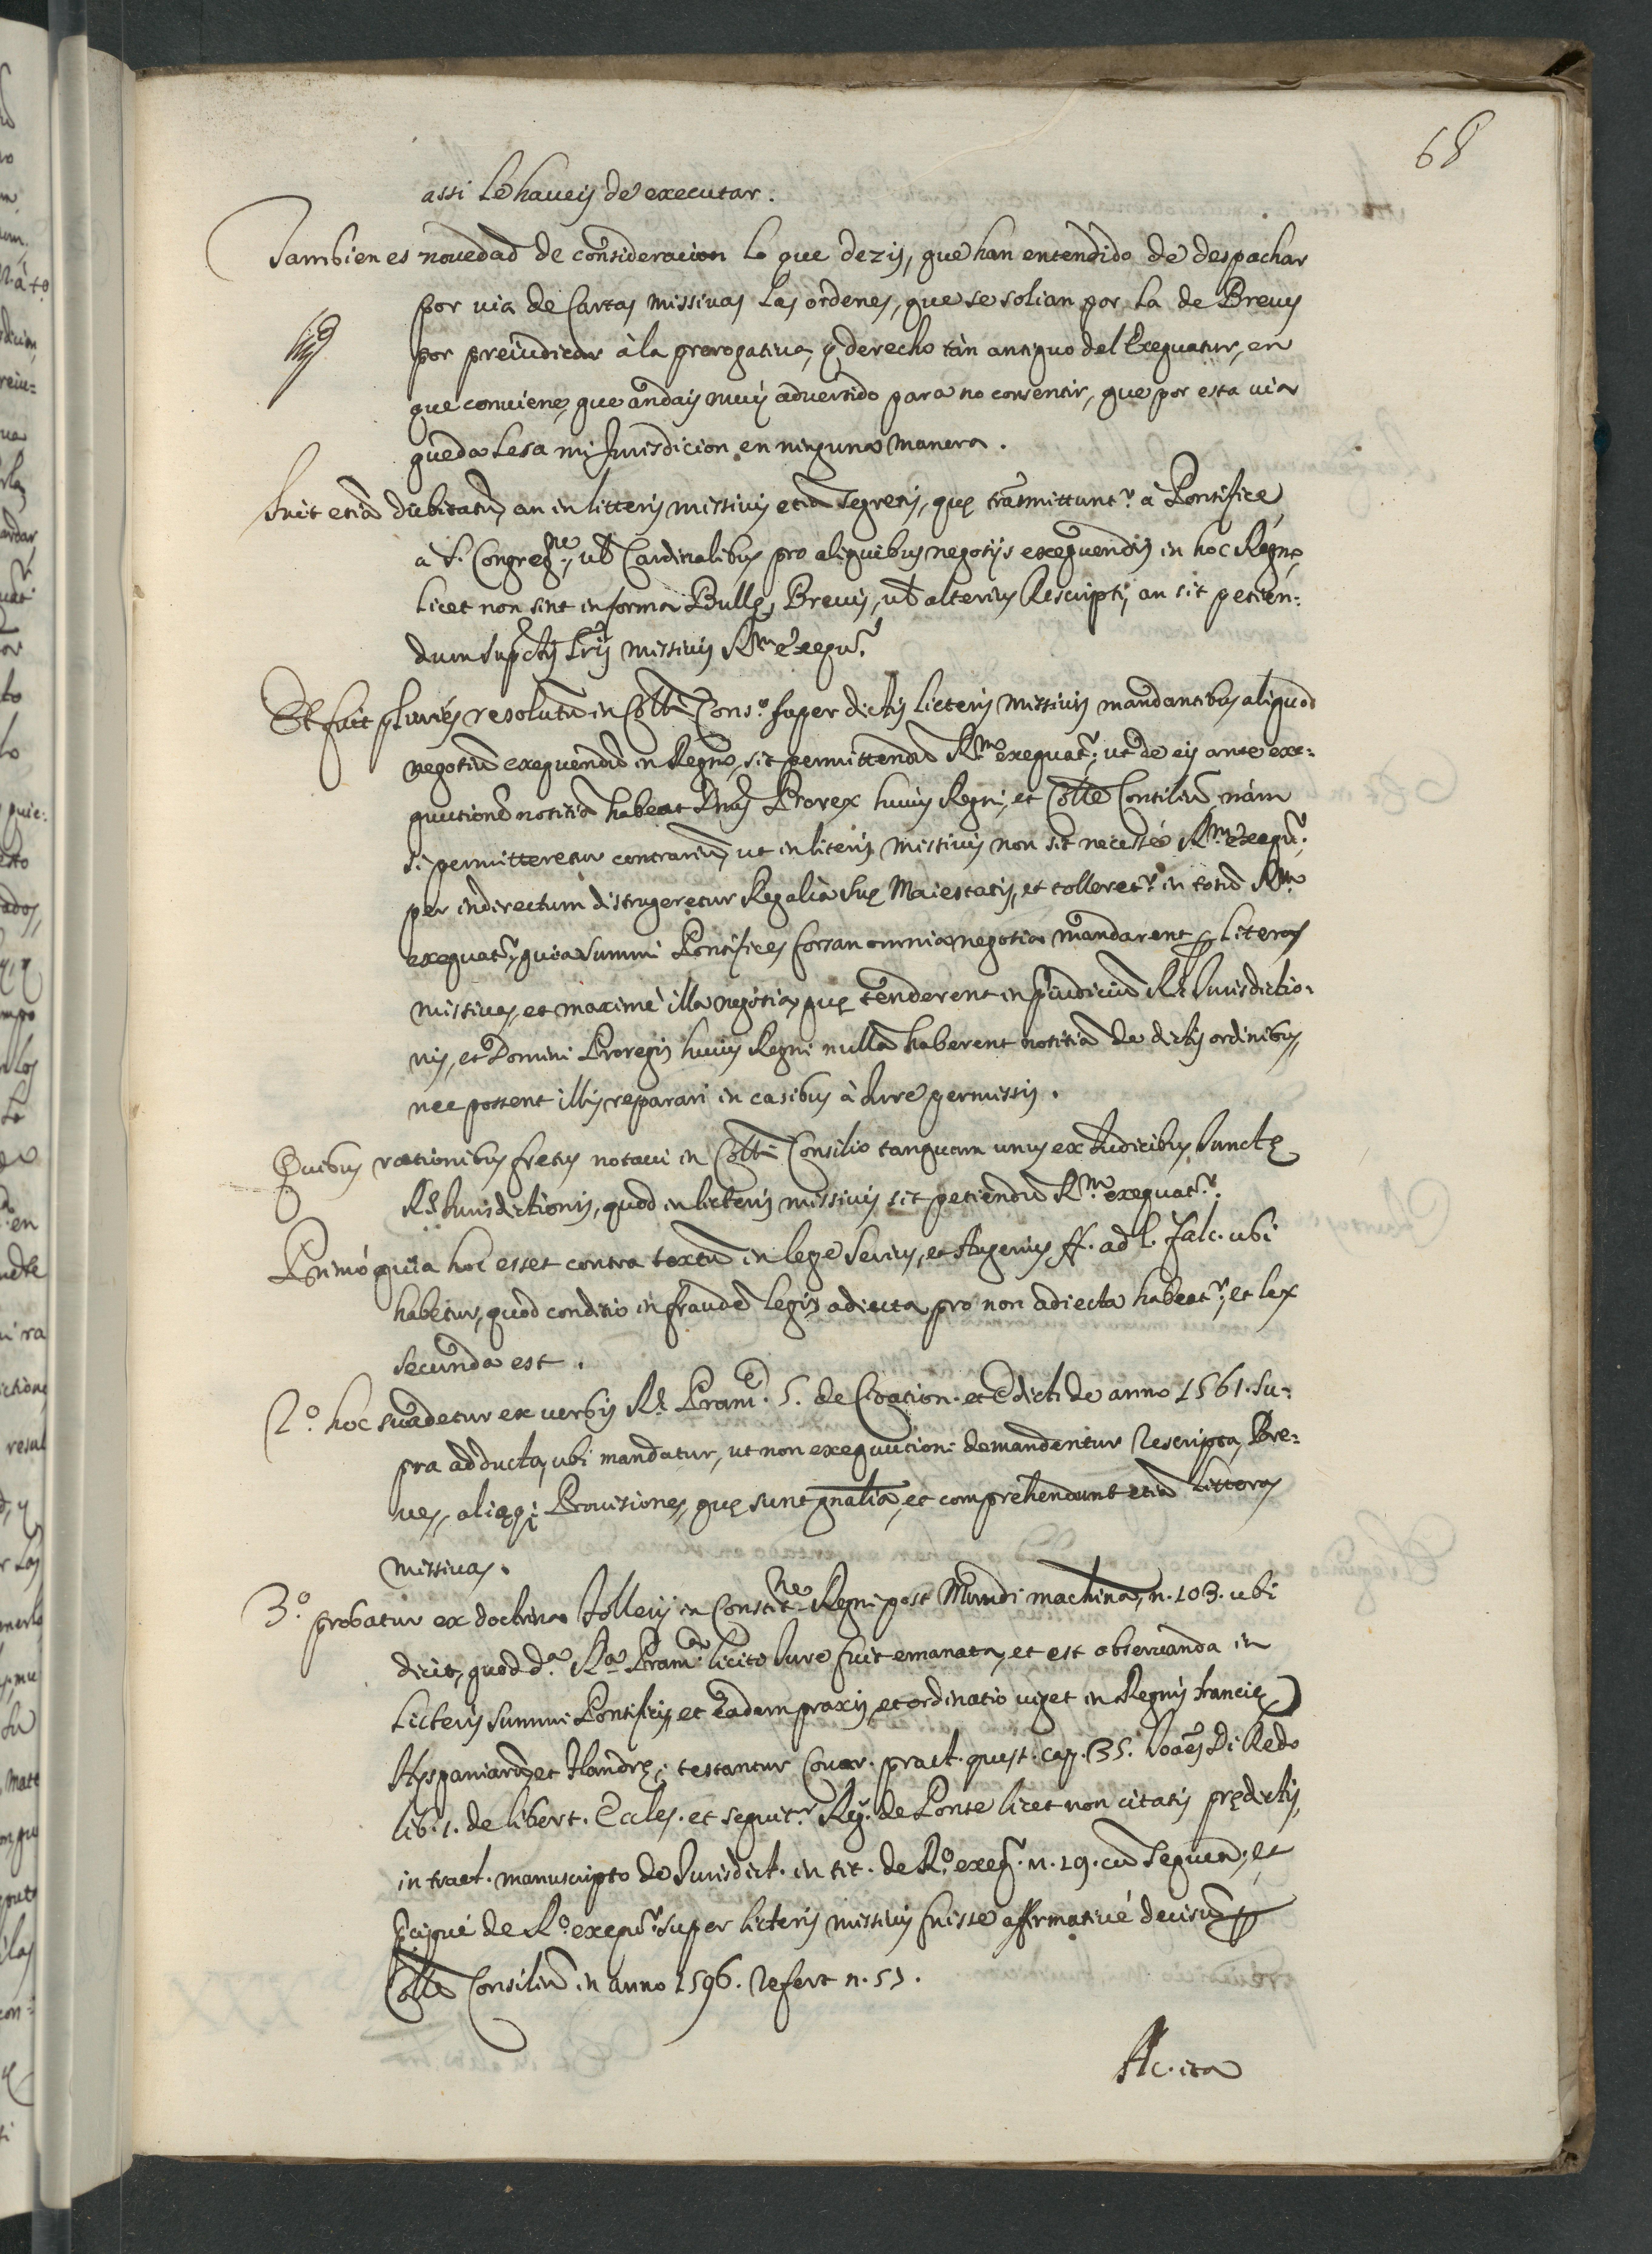 68
assi le haueis de executar.
Tambien es nouedad de consideracion lo que dezis, que han entendido de despachar
por via de Cartas missiuas las ordenes, que se solian por la de Breues
por preiudicar à la prerogatiua, y derecho tàn antiguo del Exequatur, en
que conuiene, que andais muy aduertido para no consentir, que por esta via
queda lesa mi Jurisdicion en ninguna manera.
Fuit etiã dubitatũ, an in litteris missiuis etiã segretis, quę trãsmittunt.r à Pontifice,
à S. Congreg.ne, vl Cardinalibus pro aliquibus negotijs exequendis in hoc Regno,
licet non sint in forma Bullę, Breuis, vl alterius Rescripti, an sit petien=
dum sup dictis lris missiuis R.m exequ.r
Et fuit pluries resolutũ in Colli Cons.o super dictis licteris missiuis mandantibus aliquod
negotiũ exequendũ in Regno, sit permittendũ R.m exequat.r, ut de eis ante exe=
quutionẽ notitiã habeat Dnus Prorex huius Regni, et Colle Consiliũ, nàm
si permitteretur contrariũ, ut in literis missiuis non sit necesse R.m exequ.r,
per indirectum distrugeretur Regalia Suę Maiestatis, et tolleret.r in totũ R.m
exequat.r, quia Summi Pontifices forsan omnia negotia mandarent p literas
missiuas, et maximè illa negotia, quę tenderent in piudiciũ R. Jurisdictio=
nis, et Domini Proregis huius Regni nullã haberent notitiã de dictis ordinibus,
nec possent illis reparari in casibus à Iure permissis.
Quibus rationibus fretus notaui in Colli Consilio tanquam unus ex Iudicibus Iunctę
R. Jurisdictionis, quod in licteris missiuis sit petiendũ R.m exequat.r.
Primò quia hoc esset contra textũ in lege Seruius, et Augerius ff. ad l. Falc. ubi
habetur, quod conditio in fraudẽ legis adiecta pro non adiecta habeat.r, et lex
secunda est.
2.o hoc suadetur ex verbis R. Pram. 5. de Citation. et Edicti de anno 1561. su=
pra adducta, ubi mandatur, ut non exequutioni demandentur Rescripta, Bre=
ues, aliaq; Prouisiones, quę sunt gnalia, et comprehendunt etiã litteras
missiuas.
3.o probatur ex doctrina Tolleri in Constit.ne Regni post Mundi machina, n. 103. ubi
dicit, quod d.a R.a Pram.a licito Iure fuit emanata, et est obseruanda in
licteris Summi Pontificis, et eadem praxis, et ordinatio viget in Regnis Francię
Hyspaniarũ, et Flandrę, testantur Couar. pract. quęst. cap. 35. Ioães Di Redo
lib. 1. de libert. Eccles. et sequit.r Reg. de Ponte licet non citatis prędictis,
in tract. manuscripto de Iurisdict. in tit. de R.o exeq. n. 19. cũ sequen. et
pcipuè de R.o exequ.r super licteris missiuis fuisse affirmatiuè decisũ p
Colle Consiliũ in anno 1596. refert n. 51.
Ac. ita